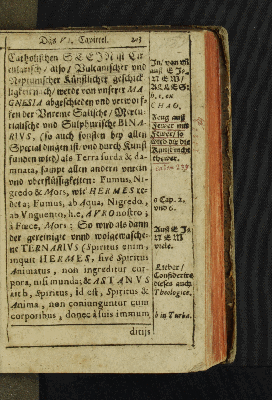 Das VI. Capittel. 203
Catholischen SEEIDI ist Ca-
also / Vulcanischer vnd
Neptunischer Künstlicher geschick-
ligkeit nach / werde von vnserer MA-
GNESIA abgeschieden vnd verworf-
fen der Vnreine Salische / Mercu-
rialische vnd Sulphurische BINA-
RIVS, (so auch sonsten bey allen
Special dingen ist / vnd durch Kunst
funden wird) als Terra surda & da-
mnata, sampt allen andern vnrein
vnd vberflüssigkeiten: Fumus, Ni-
gredo & Mors, wie HERMES re-
det a; Fumus, ab Aqua, Nigredo,
ab Vnguento, h.e, AVRO nostro;
à Fœce, Mors; So wird als dann
der gereinigte vnnd wolgewasche-
ne TERNARIVS (Spiritus enim,
inquit HERMES, sivè Spiritus
Animatus, non ingreditur cor-
pora, nisi munda; & ASTANVS
Spiritus, id est, Spiritus &
Anima, non conjunguntur cum
corporibus, donec à suis immum
ditijs
In / von
auß E J.
N E M /
CHAO.
Zeug auß
Fewer vnd
Fewer / so
wird die
Kunst nicht
a Cap. 2.
vnd 6.
Auß E J.
N E M
viele.
Liebar /
Considerire
dieses auch
Theologice.
b in Turba.